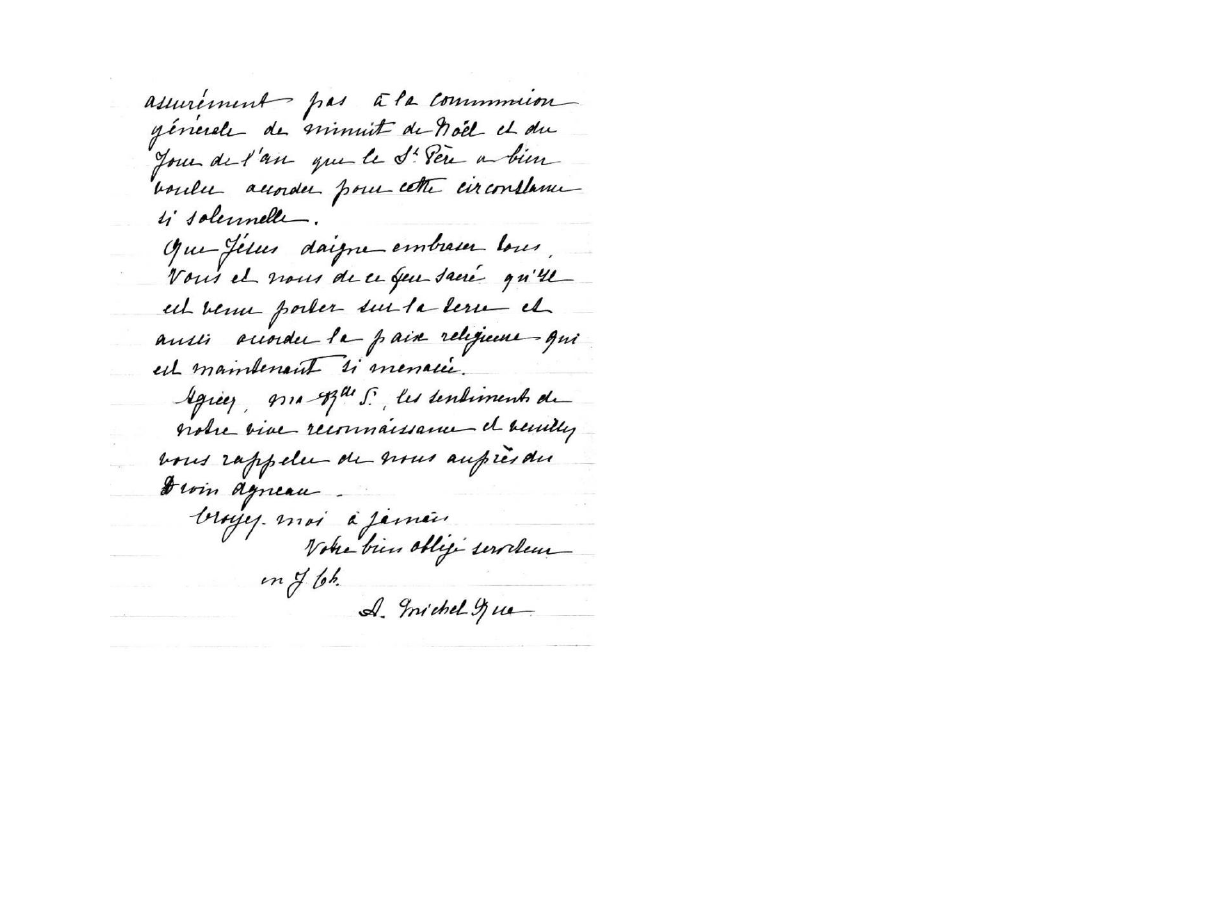 assurément pas à la communion
générale de minuit de Noël et du
Jour de l'an que le St Père a bien
voulu accorder pour cette circonstance
si solennelle.
Que Jésus daigne embraser tous,
Vous et nous de ce feu sacré qu'Il
est venu porter sur la terre et
aussi accorder la paix religieuse qui
est maintenant si menacée.
Agréez, ma Rde S., les sentiments de
notre vive reconnaissance et veuillez
vous rappeler de nous auprès du
Divin Agneau.
Croyez-moi à jamais
Votre bien obligé serviteur
en J Ch.
A. Michel Rua